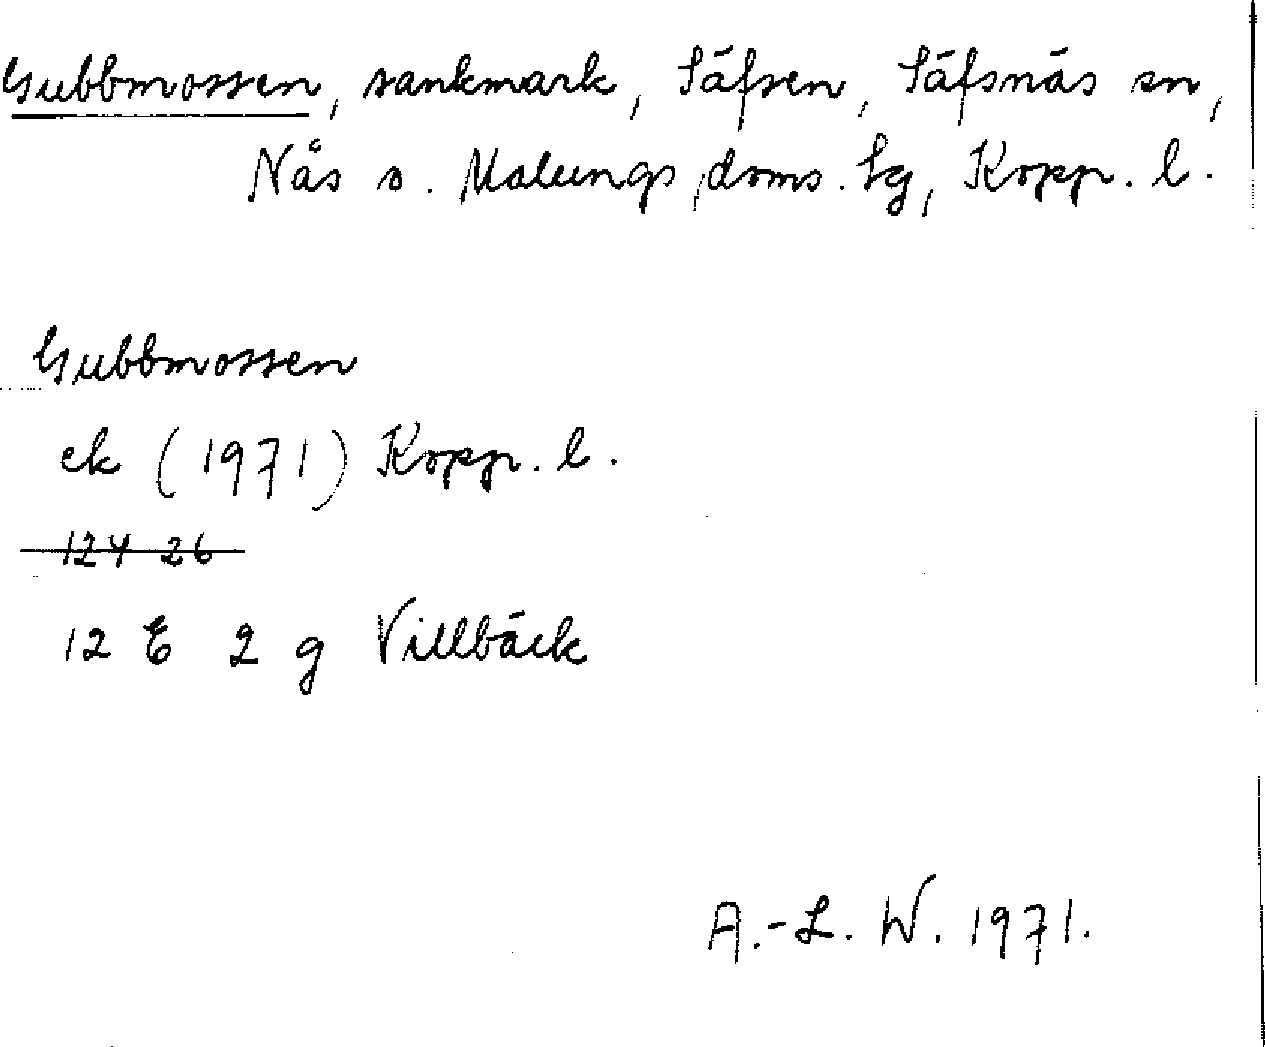 Gubbmossen, sankmark, Säfsen, Säfsnäs sn,
Nås o. Malungs doms. tg, Kopp. l.
Gubbmossen
ek (1971) Kopp. l.
124 26
12 E 2 g Villbäck
A.-L. W. 1971.